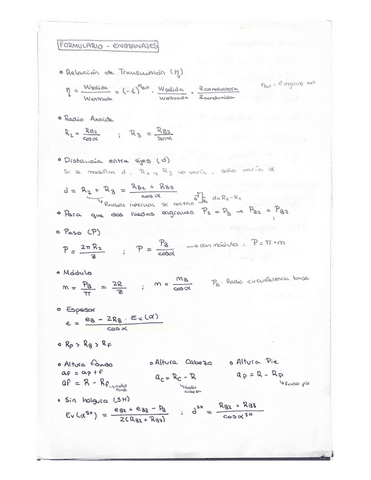 FORMULARIO - ENGRANAJES
• Relación de Transmisión (η)
η = Wsalida / Wentrada = (-1)^next · Wsalida / Wentrada = Zconductora / Zconducida
next - engrane ext
• Radio Axoide
R2 = RB2 / cosα ; R3 = RB3 / cosα
• Distancia entre ejes (d)
Si se modifica d, R2 y R3 no varía, sólo varía α
d = R2 + R3 = RB2 + RB3 / cosα
Radios internos se restan d = R3 - R2
• Para que dos ruedas engranen P2 = P3 → PB2 = PB3
• Paso (P)
P = 2πR2 / z ; P = PB / cosα → con módulo: P = π·m
• Módulo
m = PB / π = 2R / z ; m = mB / cosα
PB: Radio circunferencia base
• Espesor
e = eB - 2RB · Ev(α) / cosα
• RP > RB > RF
• Altura fondo
af = ap + f
af = R - RF
• Altura Cabeza
ac = Rc - R
Radio cabeza
• Altura Pie
ap = R - Rp
Radio pie
• Sin holgura (SH)
Ev(αSH) = eB2 + eB3 - PB / 2(RB2 + RB3) ; dSH = RB2 + RB3 / cosαSH